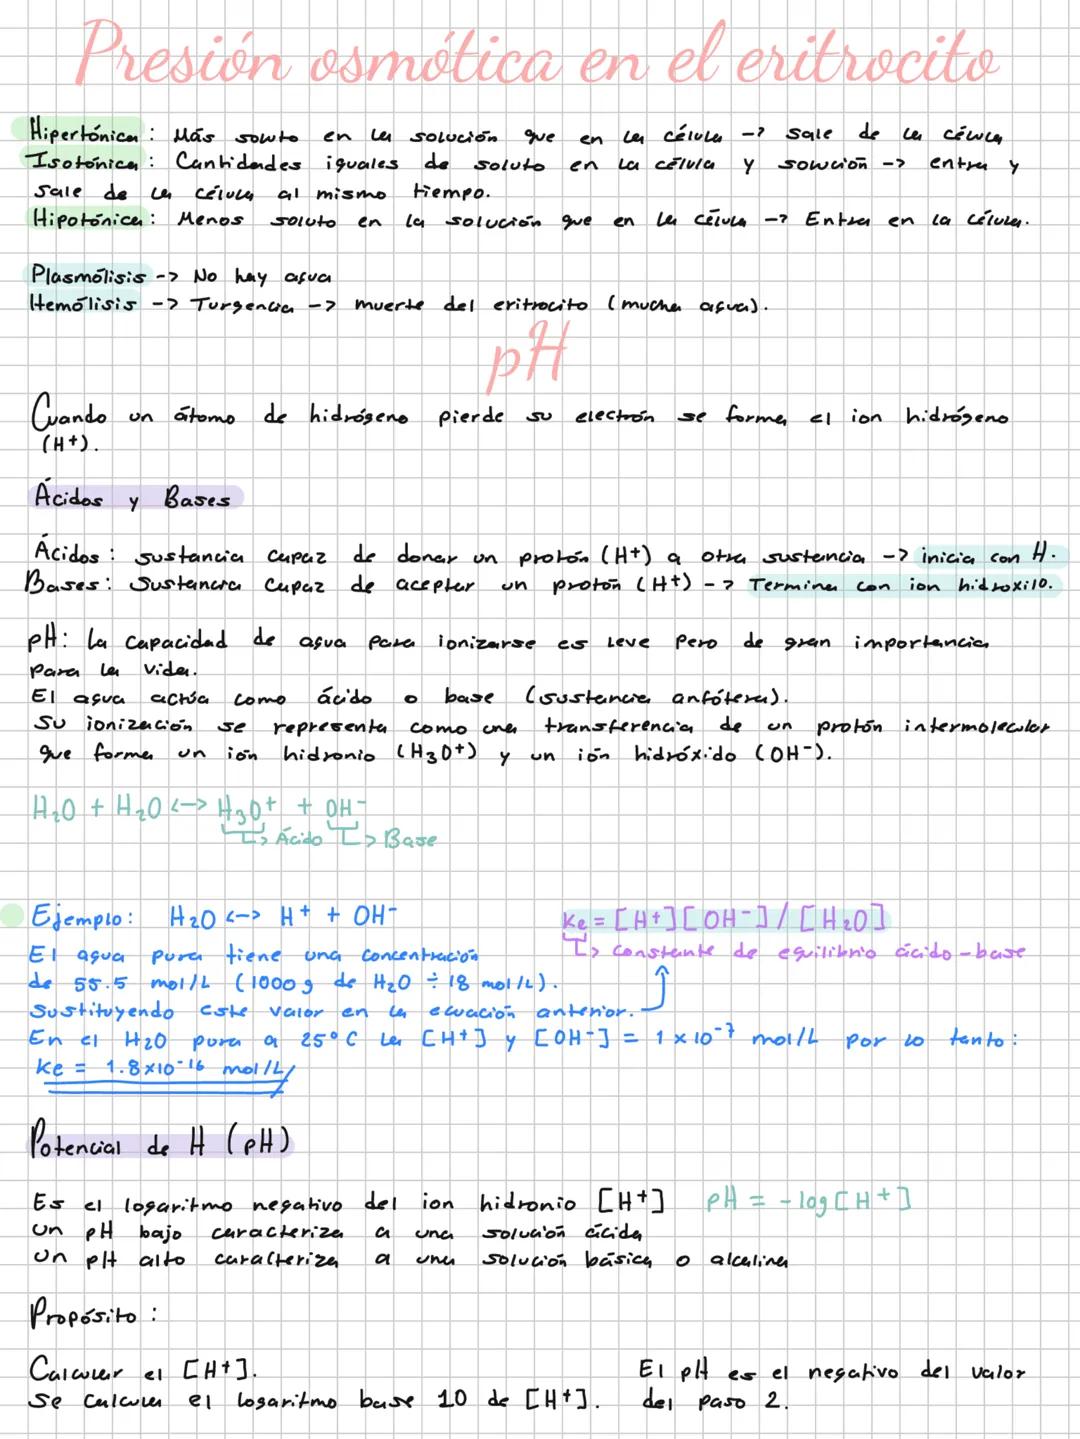 Presión osmótica en el eritrocito
Hipertónica: Más soluto en la solución que en la célula -> sale de la célula
Isotónica: Cantidades iguales de soluto en la célula y solución -> entra y
sale de la célula al mismo tiempo.
Hipotónica: Menos soluto en la solución que en la célula -> Entra en la célula.
Plasmólisis -> No hay agua
Hemólisis -> Turgencia -> muerte del eritrocito (mucha agua).
pH
Cuando un átomo de hidrógeno pierde su electrón se forma el ion hidrógeno
(H+).
Ácidos y Bases
Ácidos: sustancia capaz de donar un protón (H+) a otra sustancia -> inicia con H.
Bases: Sustancia capaz de aceptar un protón (H+) -> Termina con ion hidroxilo.
pH: La capacidad de agua para ionizarse es leve pero de gran importancia
para la vida.
El agua actúa como ácido o base (sustancia anfótera).
Su ionización se representa como una transferencia de un protón intermolecular
que forma un ión hidronio (H3O+) y un ión hidróxido (OH-).
H2O + H2O <-> H3O+ + OH-
-> Ácido -> Base
Ejemplo: H2O <-> H+ + OH-
Ke = [H+][OH-] / [H2O]
-> constante de equilibrio ácido-base
El agua pura tiene una concentración
de 55.5 mol/L (1000g de H2O ÷ 18 mol/L).
Sustituyendo este valor en la ecuación anterior.
En el H2O pura a 25°C la [H+] y [OH-] = 1 x 10-7 mol/L por lo tanto:
Ke = 1.8x10-16 mol/L
Potencial de H (pH)
Es el logaritmo negativo del ion hidronio [H+] pH = -log[H+]
Un pH bajo caracteriza a una solución ácida
Un pH alto caracteriza a una solución básica o alcalina
Propósito:
Calcular el [H+].
Se calcula el logaritmo base 10 de [H+].
El pH es el negativo del valor
del paso 2.